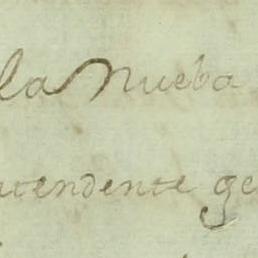 la Nueba
atendente ge